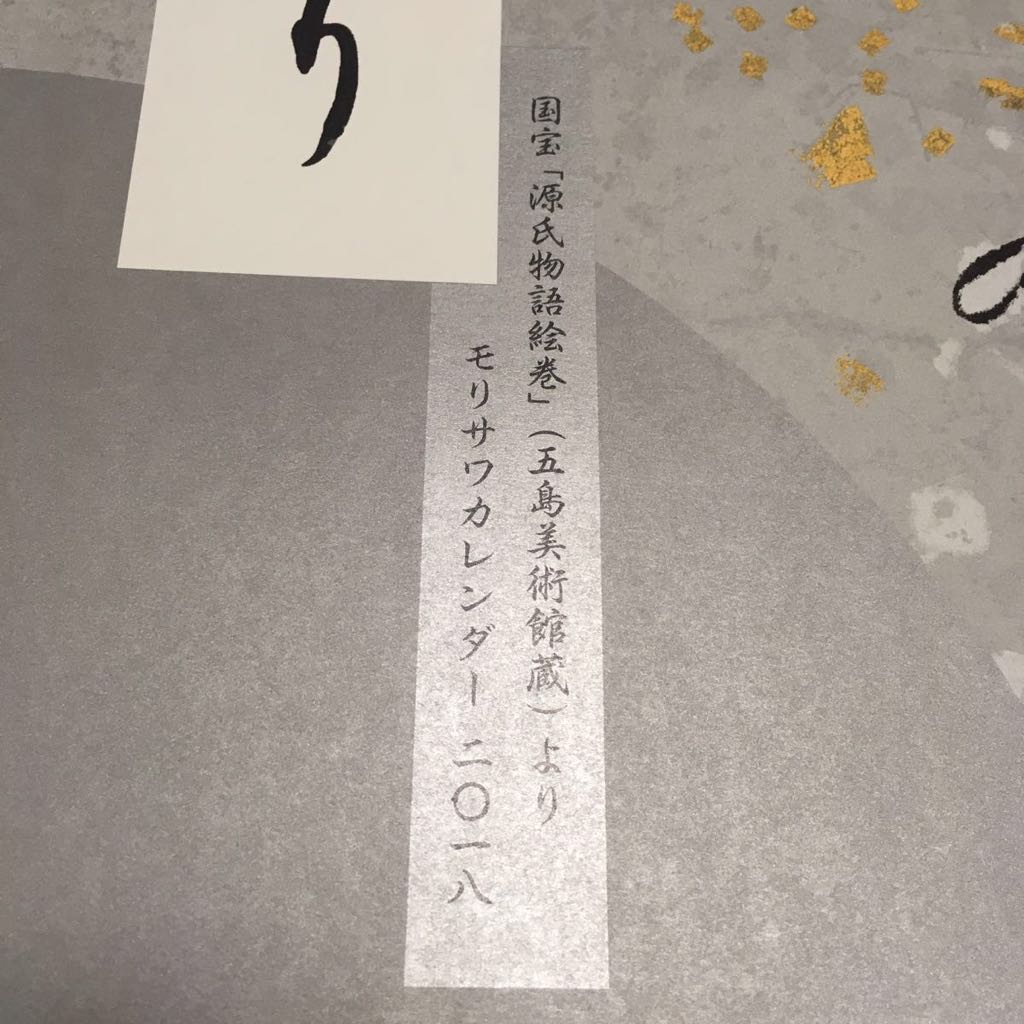 国宝「源氏物語絵巻」(五島美術館蔵)より
モリサワカレンダー 二〇一八
り